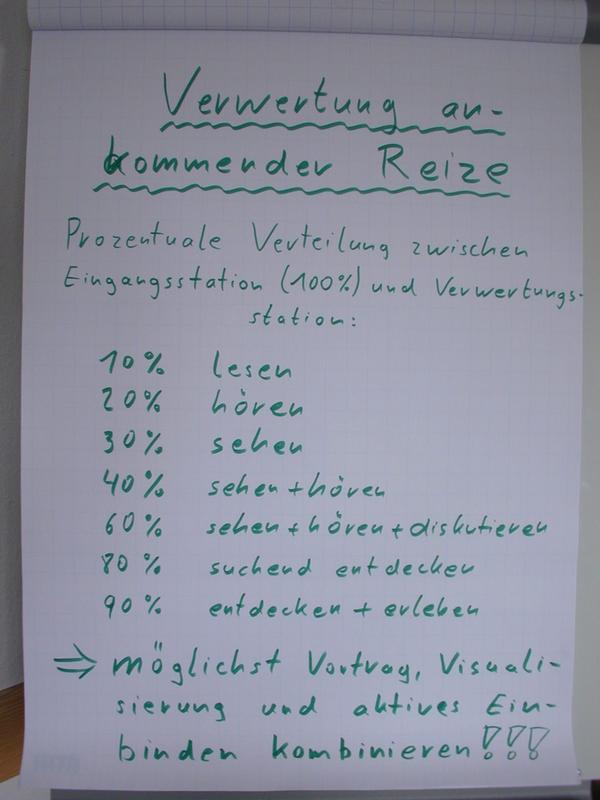 Verwertung an-
kommender Reize
Prozentuale Verteilung zwischen
Eingangsstation (100%) und Verwertungs-
station:
10% lesen
20% hören
30% sehen
40% sehen + hören
60% sehen + hören + diskutieren
80% suchend entdecken
90% entdecken + erleben
⇒ möglichst Vortrag, Visuali-
sierung und aktives Ein-
binden kombinieren!!!